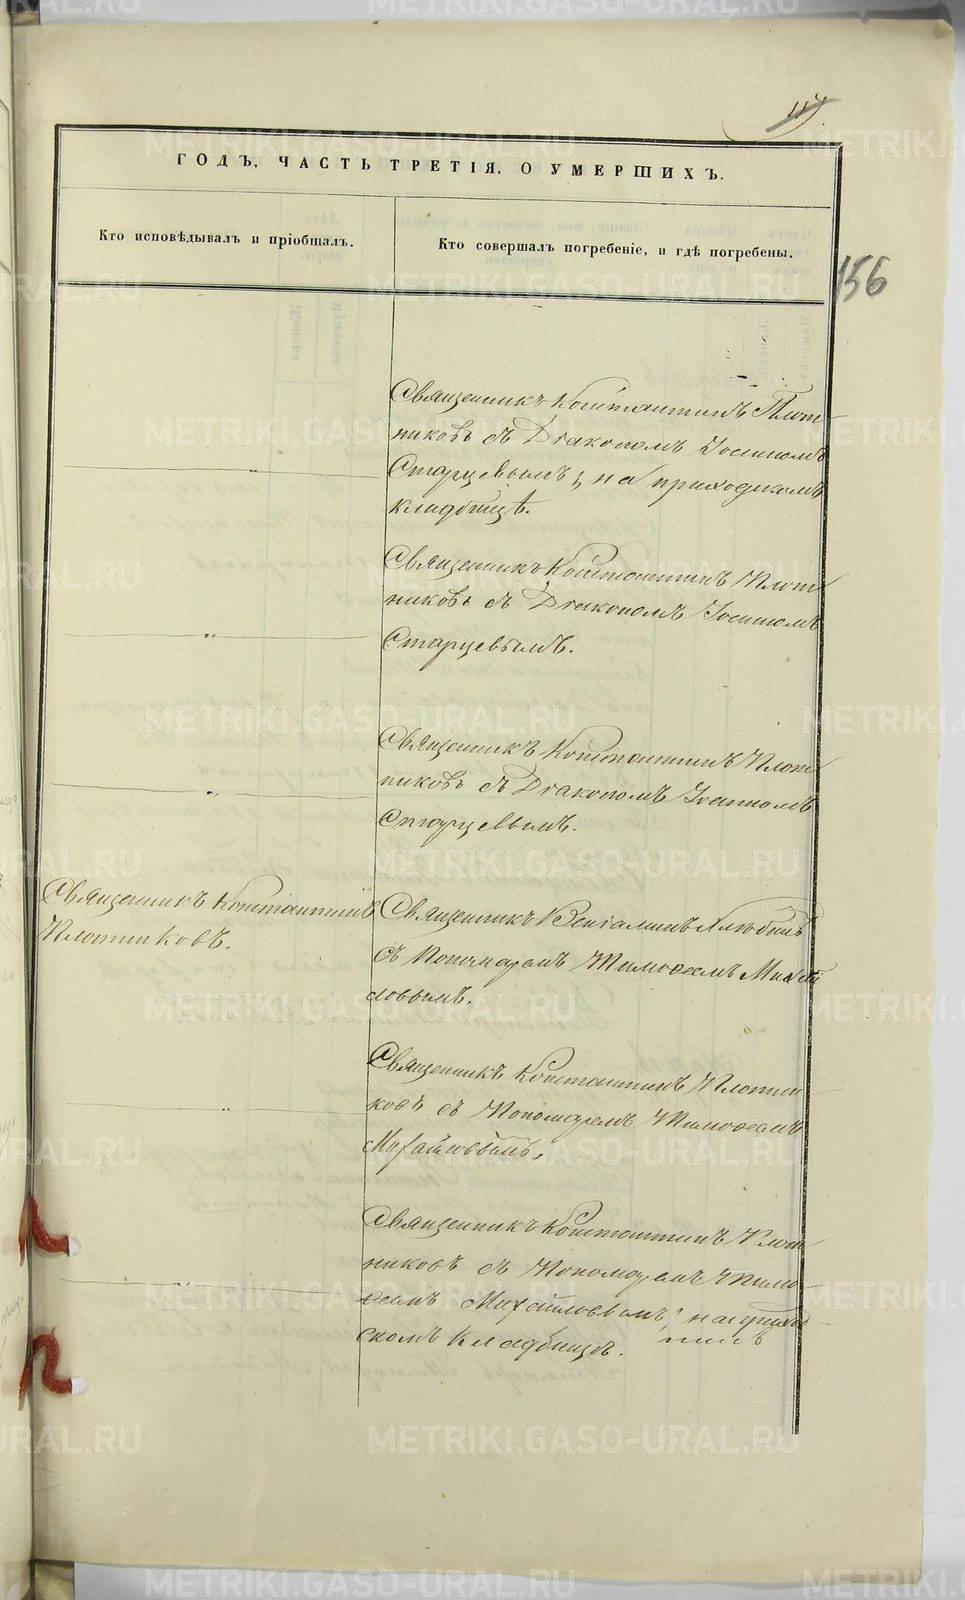 ГОДЪ, ЧАСТЬ ТРЕТІЯ, О УМЕРШИХЪ.
Кто исповѣдывалъ и пріобщалъ.
Кто совершалъ погребеніе, и гдѣ погребены.
156
Священникъ Константинъ Плот
никовъ съ Діакономъ Іосифомъ
Старцевымъ, на приходскомъ
кладбищѣ.
Священникъ Константинъ Плот
никовъ съ Діакономъ Іосифомъ
Старцевымъ.
Священникъ Константинъ Плот
никовъ съ Діакономъ
Старцевымъ.
Священникъ Константинъ
Плотниковъ.
Священникъ Веніаминъ
съ Пономаремъ Тимоѳеемъ Михай
ловымъ.
Священникъ Константинъ Плотни
ковъ съ Пономаремъ Тимоѳеемъ
Михайловымъ.
Священникъ Константинъ Плот
никовъ съ Пономаремъ Тимо
ѳеемъ Михайловымъ, на приход
скомъ кладбищѣ.
METRIKI.GASO-URAL.RU